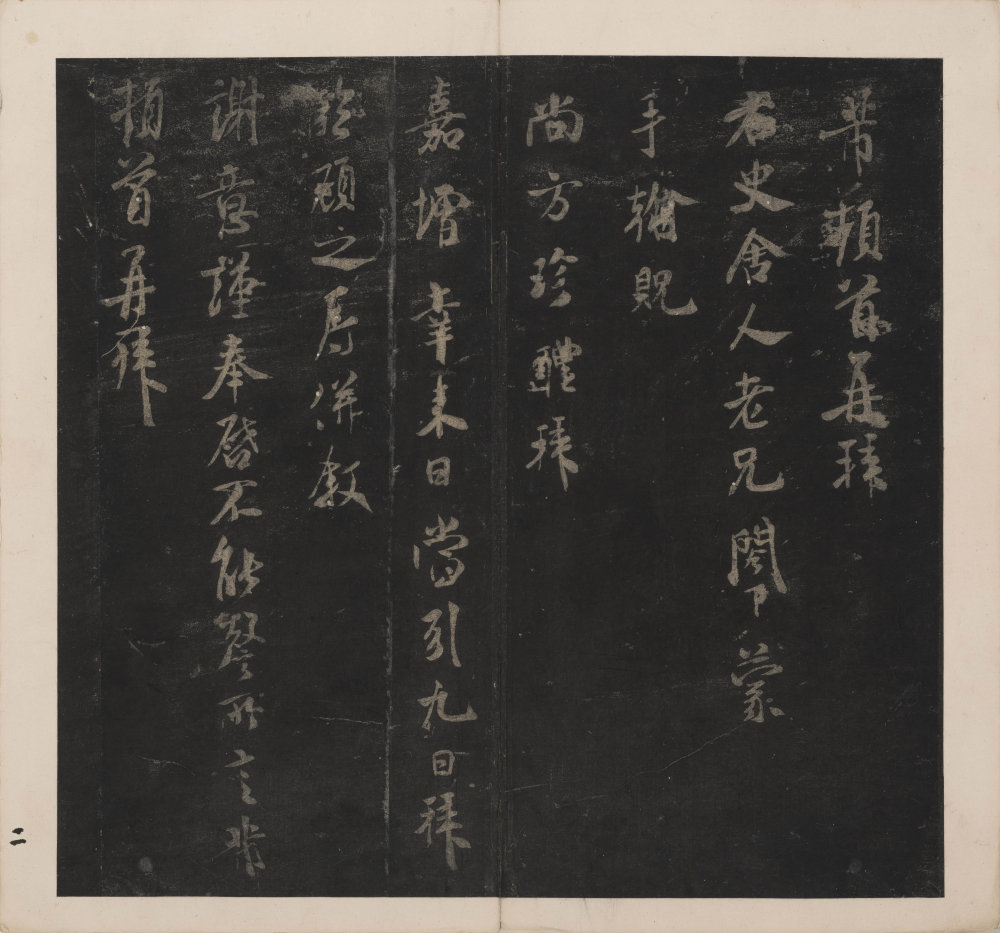 芾頓首再拜
右史舍人老兄閣下蒙
手翰貺
尚方珍醴拜
嘉增幸来日當引九日拜
臨顧之辱併敘
謝意謹奉啓不能馨所言芾
頓首再拜
二